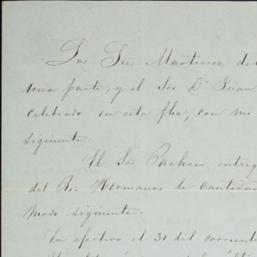 Los Sres Martinez de
una parte, y el Sor Dn Juan
celebrado en esta fha, con
siguiente.
El Sor Pacheco, entreg
del Rio Hermanos la cantidad
modo siguiente.
En efectivo el 31 del corriente